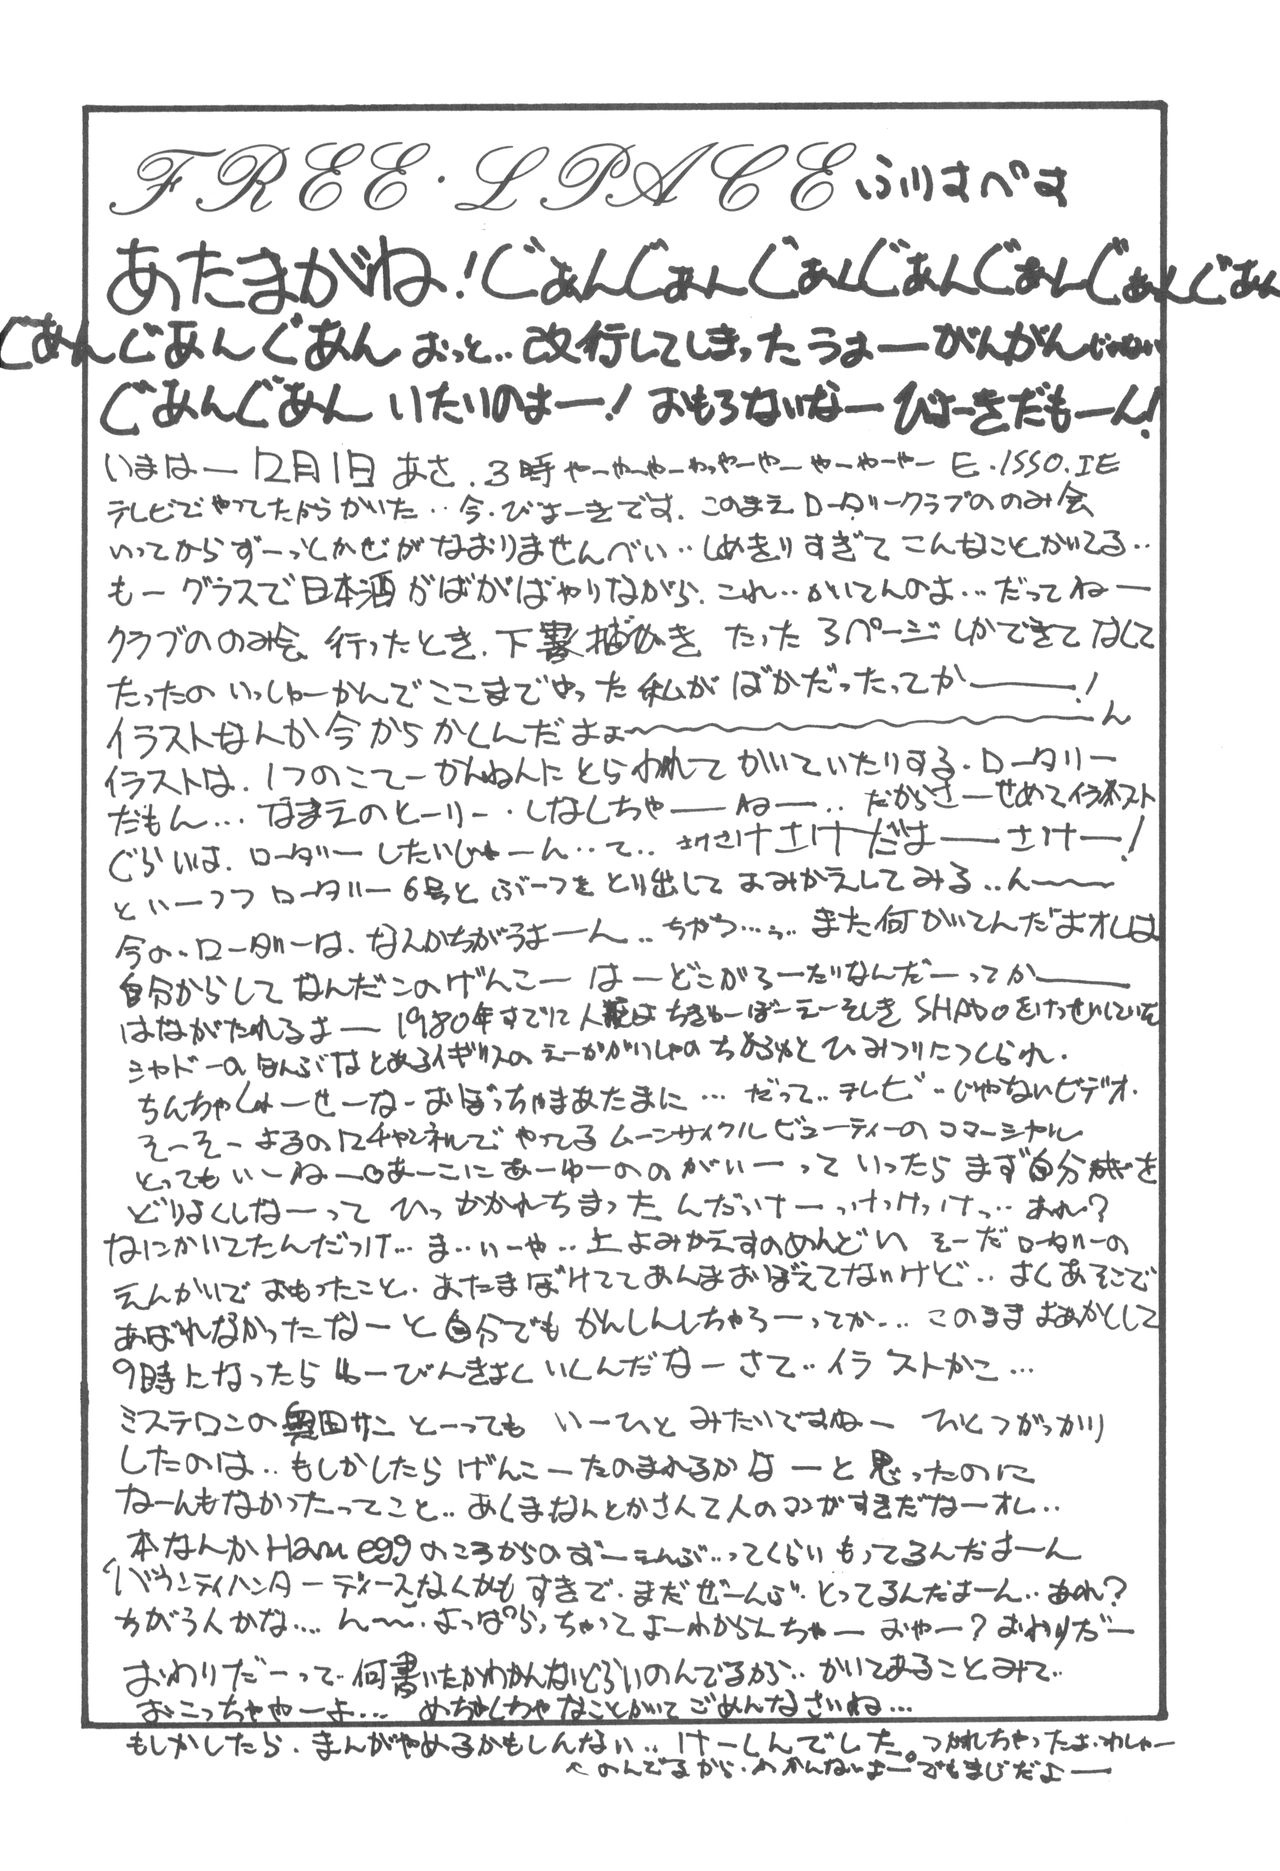 FREE・LPACE ふりすぺす
あたまがね！ぐあんぐあんぐあんぐあんぐあんぐあんぐあん
ぐあんぐあんぐあん おっと‥改行してしまったうぉーがんがんじゃない
ぐあんぐあん いたいのよー！ おもろないなー びょーきだもーん！
いまはー 12月1日 あさ.3時 やーやーやーわっやーやー やーやーやー E.ISSO.IE
テレビでやってたからかいた‥今.びょーきです.このまえ ロータリークラブののみ会
いってからずーっとかぜがなおりませんべい‥しめきりすぎて こんなことかいてる‥
もー グラスで日本酒がばがばやりながら.これ‥かいてんのよ…だってねー
クラブののみ会 行ったとき.下描がき たった3ページしかできてなして
たったの いっしゅーかんでここまでやった私が ばかだったってかー！
イラストなんか今からかくんだよぉ〜〜〜ん
イラストは.1つのこてーかんねんにとらわれてかいていたりする.ロータリー
だもん…なまえのとーりー.しなしちゃーねー‥だからさーせめてイラスト
ぐらいは.ローダー したいじゃーん‥て‥さけさけさけだよーさけー！
といーつつ ローダー 6号と ぶーつをとり出して よみかえしてみる‥ん〜〜
今の.ローダーは.なんかちがうよーん‥ちがう…ぅ‥また何かいてんだよオレは
自分からして なんだこのげんこー はーどこがろーだりなんだーってかー
はながたれるよー 1980年すでに人類は ちきゅーぼーえーそしき SHADOをけっせいしていた
シャドーのほんぶはとあるイギリスのえーががいしゃのちかふかくひみつりにつくられ.
ちんちゃくしゅーせーなーおぼっちゃまあたまに…だって‥テレビ‥じゃないビデオ.
そーそー よるの12チャンネルでやってる ムーンサイクルビューティーのコマーシャル
とってもいーねー♡あーこにあーゆーののがいーって いったら まず自分を
どりょくしなーって ひっかかれちまったんだっけーっけっけっけっ‥あれ？
なにかいてたんだっけ…ま‥いーや‥上よみかえすのめんどい そーだ ローダリーの
えんかいで おもったこと‥あたまぼけててあんまおぼえてないけど‥よくあそこで
あばれなかったなーと自分でも かんしんしちゃろーってか…このままよあかしして
9時になったら ゆーびんきょくいくんだなー さて‥イラストかこ…
ミステロンの奥田サン とーっても いーひと みたいですねー ひとつがっかり
したのは‥もしかしたら げんこーたのまれるかなーと思ったのに
なーんもなかったってこと‥あくまなんとかさんて人のマンガすきだなーオレ‥
本なんかHam eggのころからのずーぇんぶ‥ってくらいもってるんだよーん
バウンティハンターディースなくかもすきで.まだぜーんぶ.とってるんだよーん‥あれ？
ちがう人かな…ん〜.よっぱらっちゃってよーわからんちゃー おやー？おわりだー
おわりだーって.何書いたかわかんないくらいのんでるから‥かいてあることみて‥
おこっちゃやーよ… めちゃくちゃなことかいてごめんなさいね…
もしかしたら.まんがやめるかもしんない‥けーしんでした。つかれちゃったよ.わしゃー
へのんでるから.わかんないよー。でもまじだよー